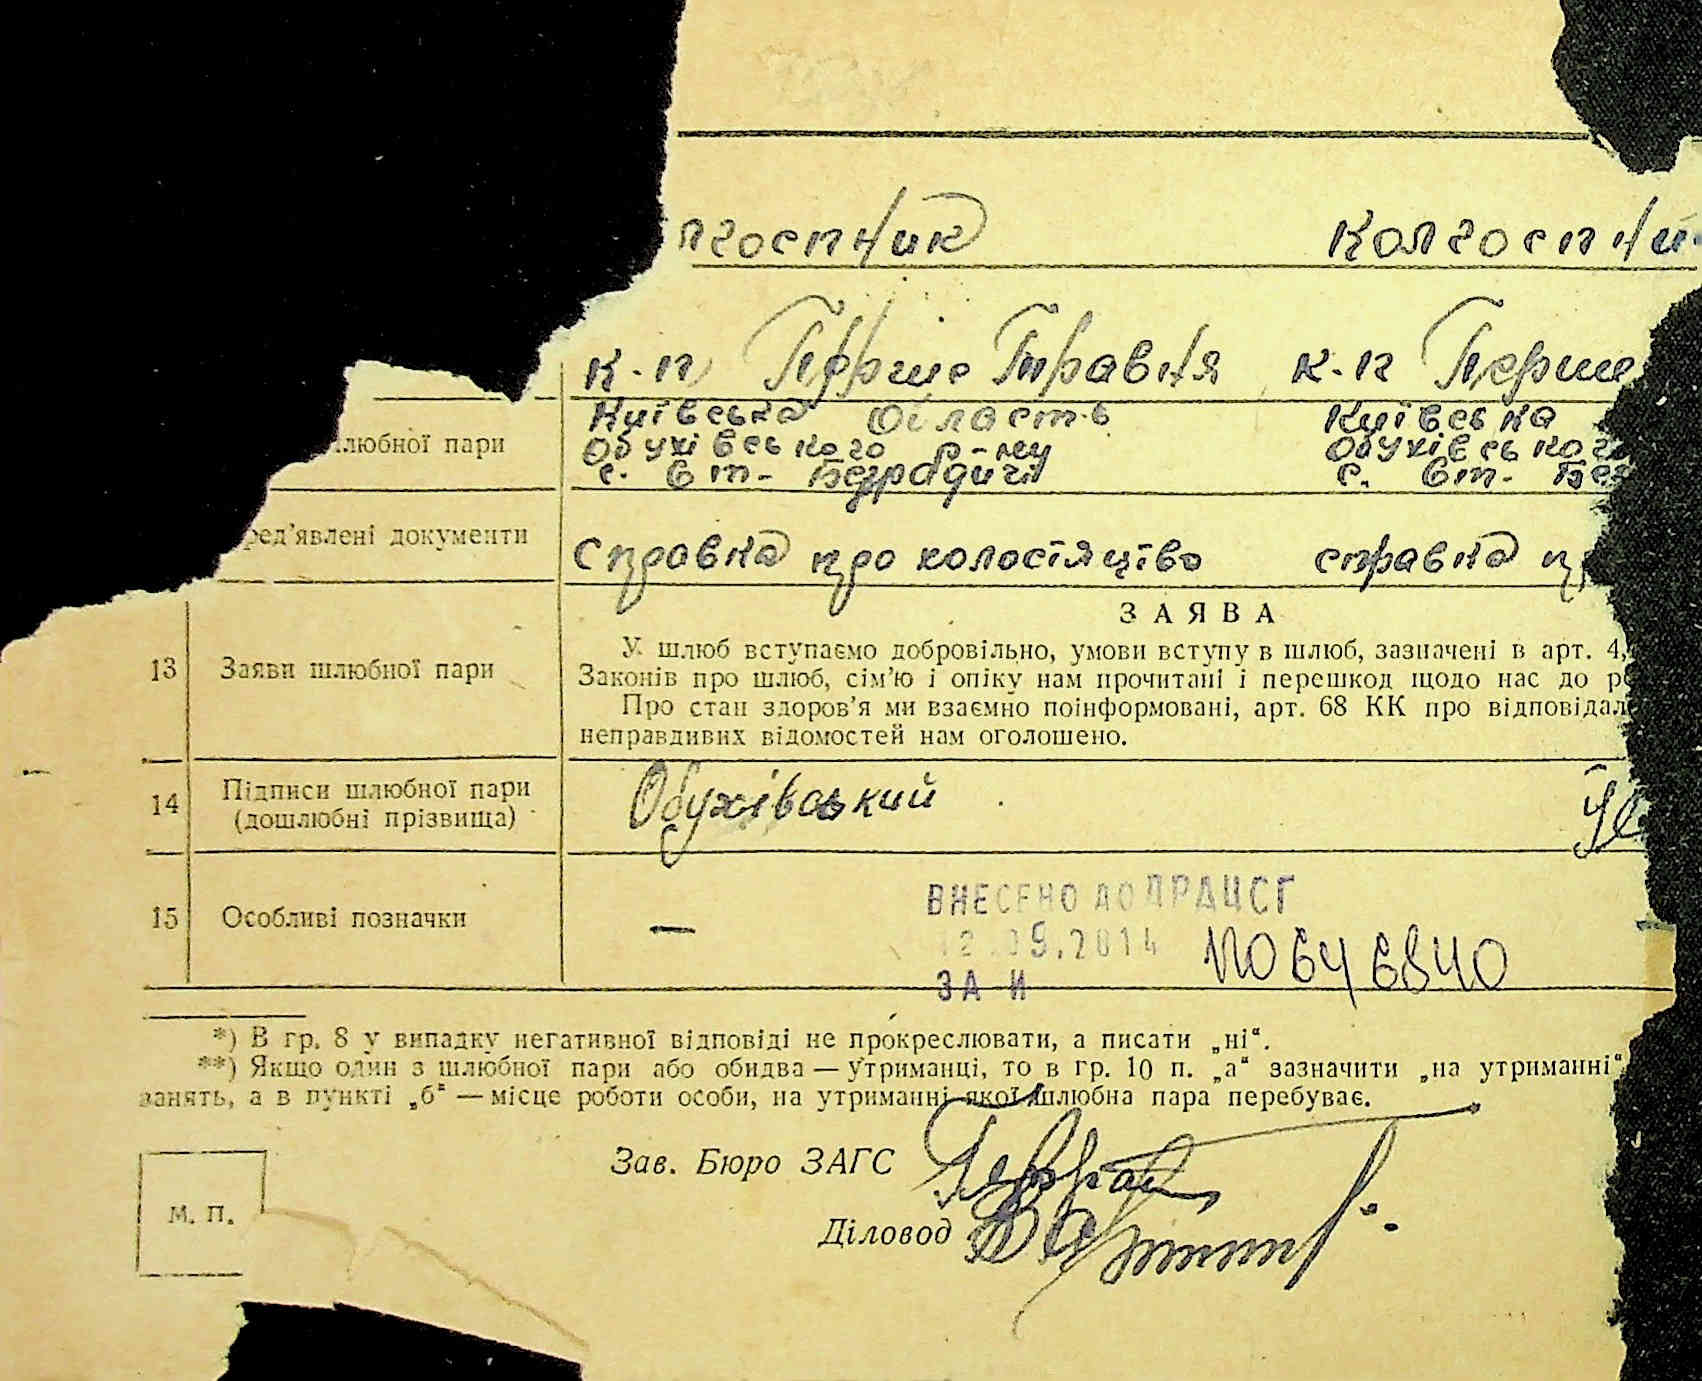 лгоспник колгоспни
к-п Перше Травня к-п Перше
Київська область Київська
шлюбної пари Обухівського р-ну Обухівськог
с. вт- Безрадичі с. вт- Без
ред'явлені документи Справка про холостіяцтво справка п
ЗАЯВА
У шлюб вступаємо добровільно, умови вступу в шлюб, зазначені в арт. 4,
13 Заяви шлюбної пари Законів про шлюб, сім'ю і опіку нам прочитані і перешкод щодо нас до р
Про стан здоров'я ми взаємно поінформовані, арт. 68 КК про відповідал
неправдивих відомостей нам оголошено.
14 Підписи шлюбної пари Обухівський
(дошлюбні прізвища)
15 Особливі позначки — ВНЕСЕНО ДО ДРАЦСГ
12.09.2014
ЗА И
*) В гр. 8 у випадку негативної відповіді не прокреслювати, а писати „ні“.
**) Якщо один з шлюбної пари або обидва — утриманці, то в гр. 10 п. „а“ зазначити „на утриманні“
занять, а в пункті „б“ — місце роботи особи, на утриманні якої шлюбна пара перебуває.
Зав. Бюро ЗАГС
Діловод
М. П.